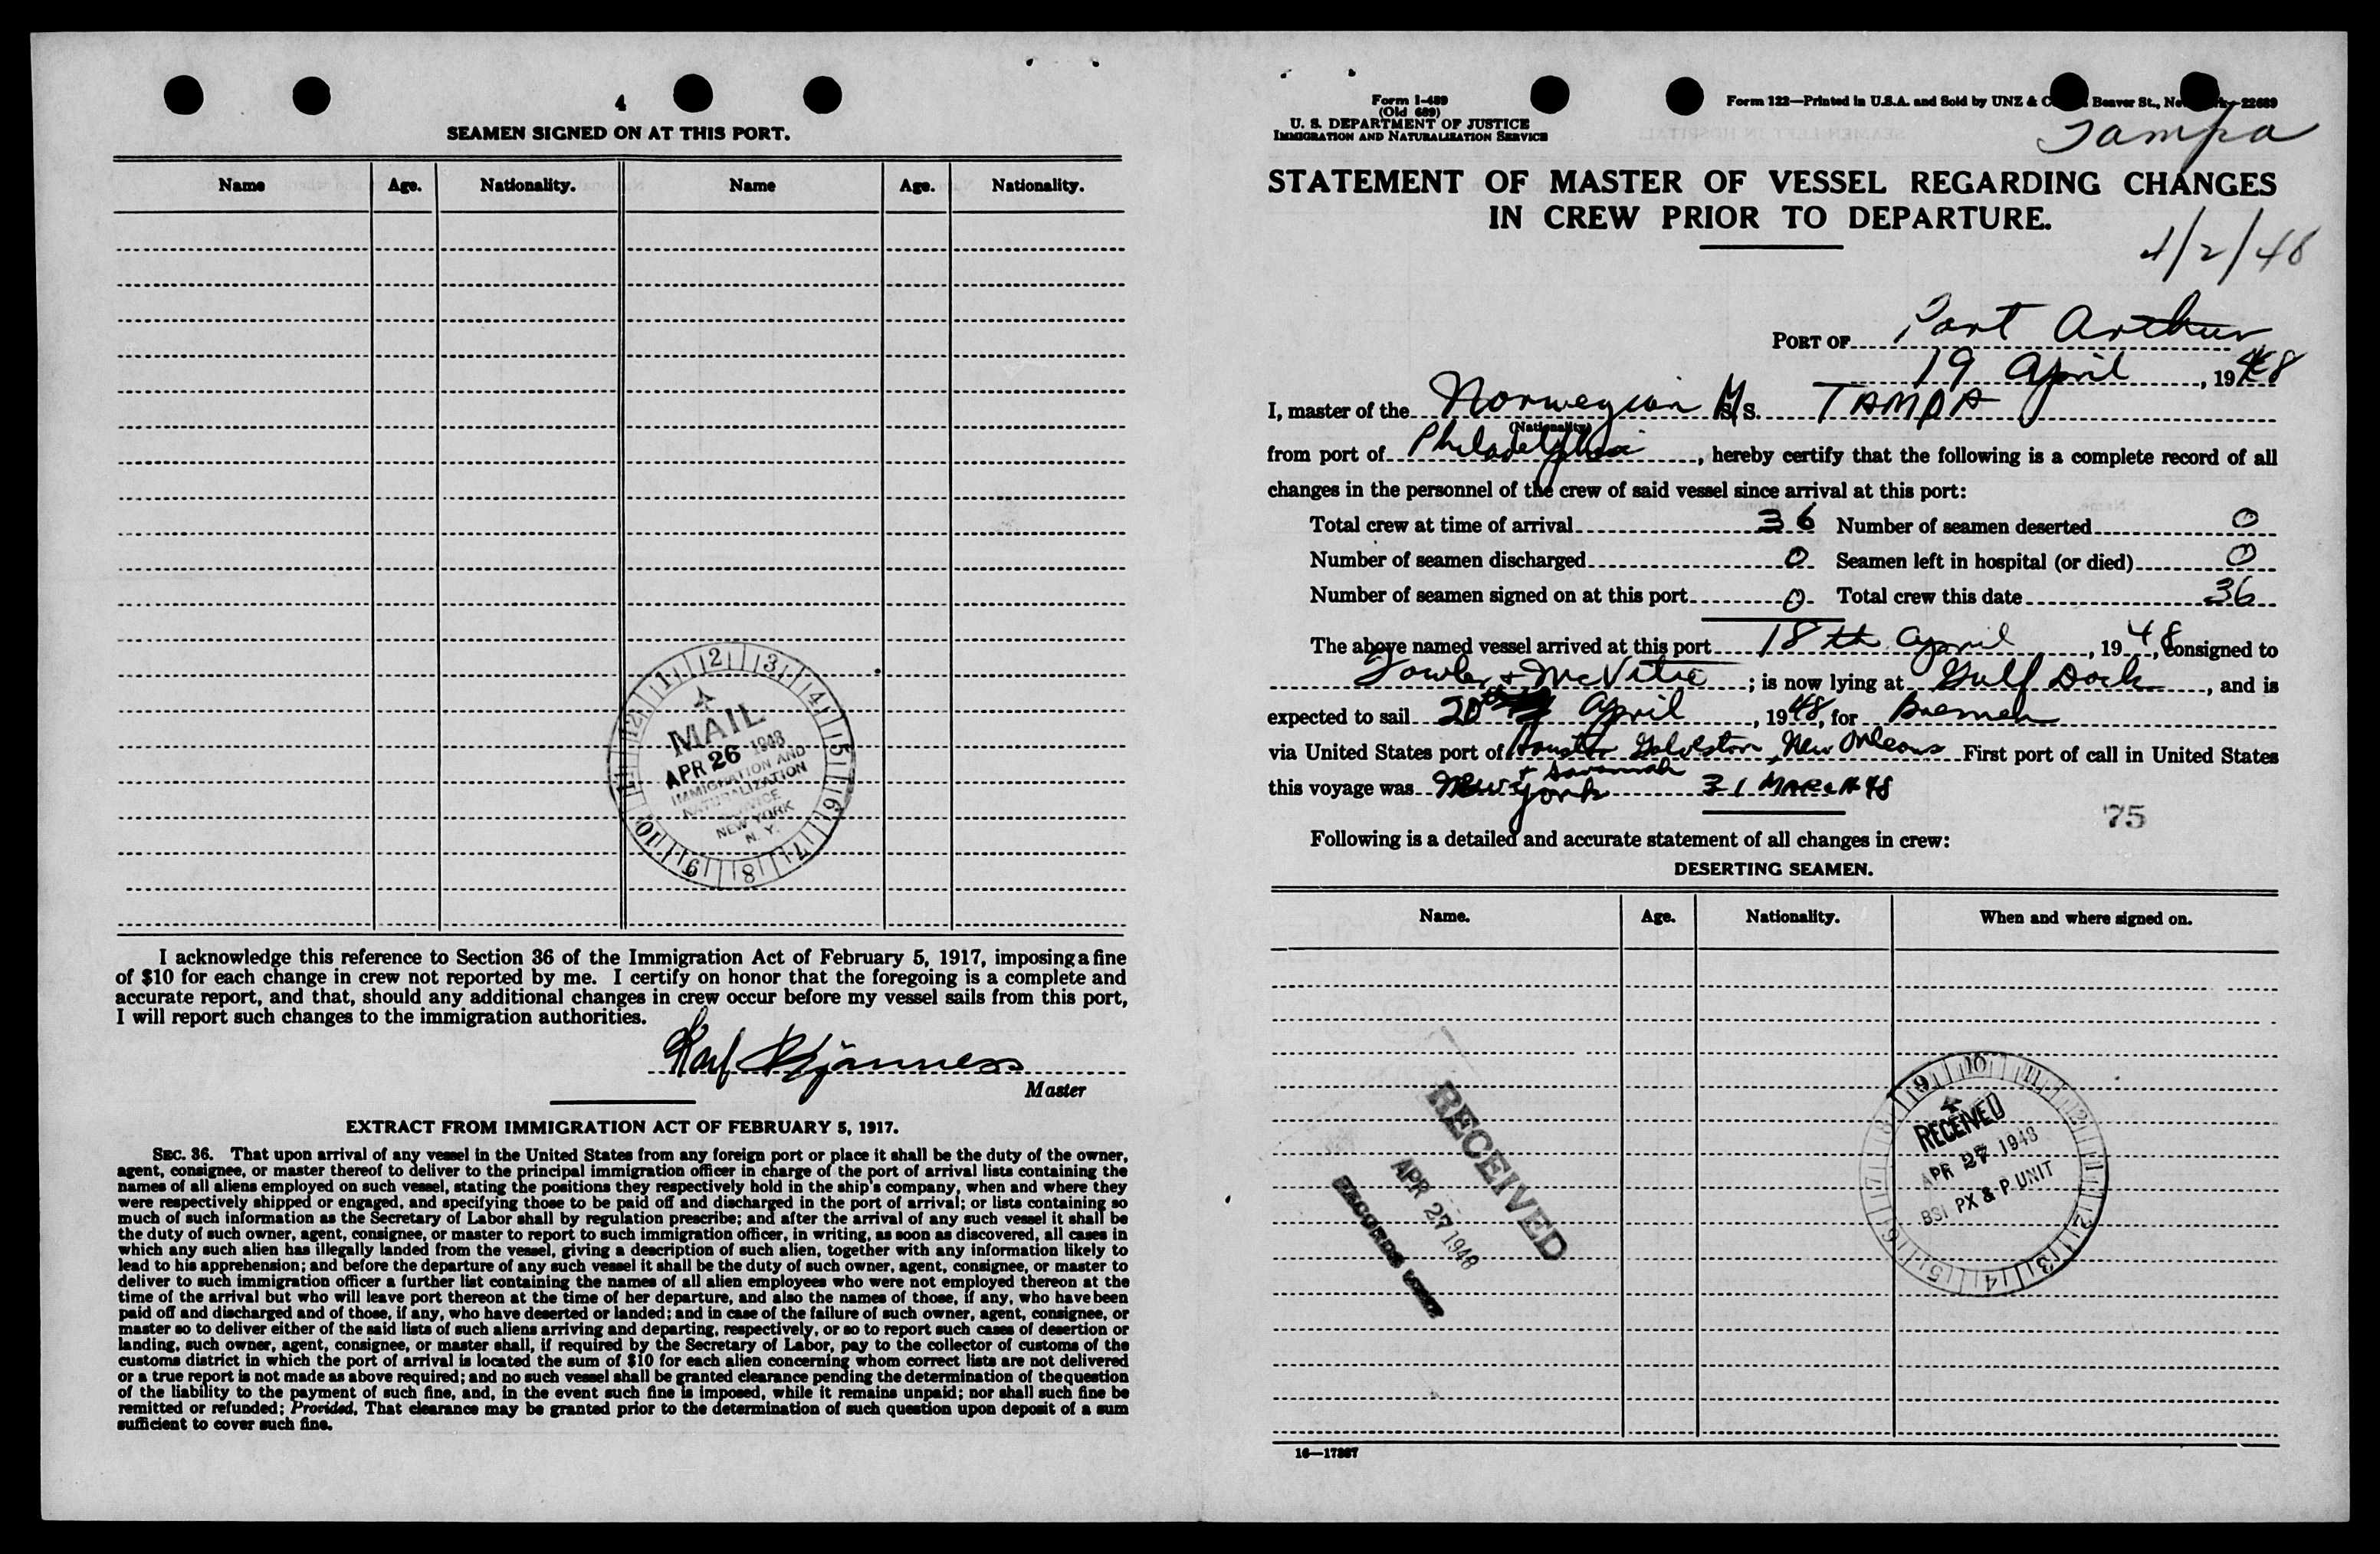 4
SEAMEN SIGNED ON AT THIS PORT.
Name Age. Nationality. Name Age. Nationality.
12 1 2 3 4 5 6 7 8 9 10 11
MAIL
APR 26 1948
IMMIGRATION AND
NATURALIZATION
SERVICE
NEW YORK
N. Y.
I acknowledge this reference to Section 36 of the Immigration Act of February 5, 1917, imposing a fine
of $10 for each change in crew not reported by me. I certify on honor that the foregoing is a complete and
accurate report, and that, should any additional changes in crew occur before my vessel sails from this port,
I will report such changes to the immigration authorities.
Master
EXTRACT FROM IMMIGRATION ACT OF FEBRUARY 5, 1917.
SEC. 36. That upon arrival of any vessel in the United States from any foreign port or place it shall be the duty of the owner,
agent, consignee, or master thereof to deliver to the principal immigration officer in charge of the port of arrival lists containing the
names of all aliens employed on such vessel, stating the positions they respectively hold in the ship's company, when and where they
were respectively shipped or engaged, and specifying those to be paid off and discharged in the port of arrival; or lists containing so
much of such information as the Secretary of Labor shall by regulation prescribe; and after the arrival of any such vessel it shall be
the duty of such owner, agent, consignee, or master to report to such immigration officer, in writing, as soon as discovered, all cases in
which any such alien has illegally landed from the vessel, giving a description of such alien, together with any information likely to
lead to his apprehension; and before the departure of any such vessel it shall be the duty of such owner, agent, consignee, or master to
deliver to such immigration officer a further list containing the names of all alien employees who were not employed thereon at the
time of the arrival but who will leave port thereon at the time of her departure, and also the names of those, if any, who have been
paid off and discharged and of those, if any, who have deserted or landed; and in case of the failure of such owner, agent, consignee, or
master so to deliver either of the said lists of such aliens arriving and departing, respectively, or so to report such cases of desertion or
landing, such owner, agent, consignee, or master shall, if required by the Secretary of Labor, pay to the collector of customs of the
customs district in which the port of arrival is located the sum of $10 for each alien concerning whom correct lists are not delivered
or a true report is not made as above required; and no such vessel shall be granted clearance pending the determination of the question
of the liability to the payment of such fine, and, in the event such fine is imposed, while it remains unpaid; nor shall such fine be
remitted or refunded; Provided, That clearance may be granted prior to the determination of such question upon deposit of a sum
sufficient to cover such fine.
Form I-489
(Old 689)
U. S. DEPARTMENT OF JUSTICE
IMMIGRATION AND NATURALIZATION SERVICE
Form 122—Printed in U.S.A. and Sold by UNZ & Beaver St., 22689
Tampa
STATEMENT OF MASTER OF VESSEL REGARDING CHANGES
IN CREW PRIOR TO DEPARTURE.
4/2/48
PORT OF Port Arthur
19 April, 1948
I, master of the Norwegian M/S. TAMPA
(Nationality)
from port of Philadelphia, hereby certify that the following is a complete record of all
changes in the personnel of the crew of said vessel since arrival at this port:
Total crew at time of arrival 36 Number of seamen deserted 0
Number of seamen discharged 0 Seamen left in hospital (or died) 0
Number of seamen signed on at this port 0 Total crew this date 36
The above named vessel arrived at this port 18th April, 1948, consigned to
Fowler & McVitie; is now lying at Gulf Dock, and is
expected to sail 20th April, 1948, for Bremen
via United States port of Houston Galveston, New Orleans First port of call in United States
+ Savannah
this voyage was New York 31 MARCH 48
75
Following is a detailed and accurate statement of all changes in crew:
DESERTING SEAMEN.
Name. Age. Nationality. When and where signed on.
RECEIVED
APR 27 1948
RECORDS
9 10 11 12 1 2 3 4 5 6 7 8
RECEIVED
APR 27 1948
BSI PX & P UNIT
16—17367